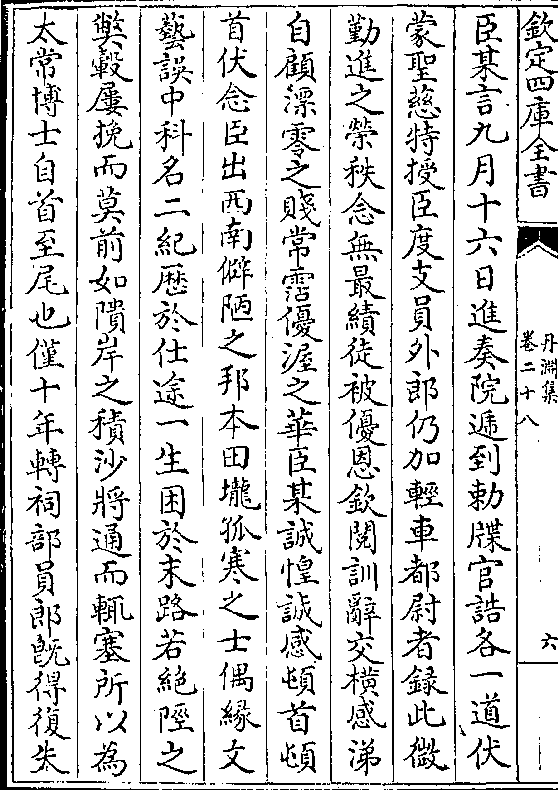 欽定四庫全書
丹淵集
卷二十八
六
臣某言九月十六日進奏院遞到勅牒官誥各一道伏
蒙聖慈特授臣度支員外郎仍加輕車都尉者録此微
勤進之榮秩念無最績徒被優恩欽閱訓辭交橫感涕
自顧漂零之賤常霑優渥之華臣某誠惶誠感頓首頓
首伏念臣出西南僻陋之邦本田壠孤寒之士偶緣文
藝誤中科名二紀厯於仕途一生困於末路若絶陘之
獘轂屢挽而莫前如隤岸之積沙將通而輒塞所以為
太常博士自首至尾也僅十年轉祠部員郎既得復失